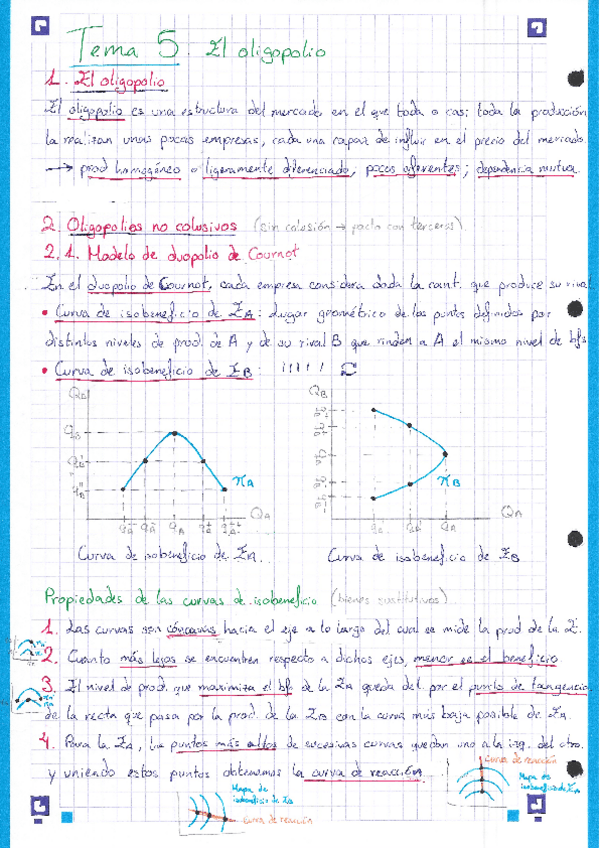 Tema 5. El oligopolio
1. El oligopolio
El oligopolio es una estructura del mercado en el que toda o casi toda la producción
la realizan unas pocas empresas, cada una capaz de influir en el precio del mercado.
→ prod homogéneo o ligeramente diferenciado, pocos oferentes; dependencia mutua.
2. Oligopolios no colusivos (sin colusión → pacto con terceros)
2.1. Modelo de duopolio de Cournot
En el duopolio de Cournot, cada empresa considera dada la cant. que produce su rival
• Curva de isobeneficio de EA: lugar geométrico de los puntos definidos por
distintos niveles de prod. de A y de su rival B que rinden a A el mismo nivel de bfs
• Curva de isobeneficio de EB: 
QB
qB
πA
QA
qA
QB
πB
QA
qA
Curva de isobeneficio de EA.
Curva de isobeneficio de EB
Propiedades de las curvas de isobeneficio (bienes sustitutivos)
1. Las curvas son cóncavas hacia el eje a lo largo del cual se mide la prod de la E.
2. Cuanto más lejos se encuentren respecto a dichos ejes, menor es el beneficio.
3. El nivel de prod. que maximiza el bfº de la EA queda det. por el punto de tangencia
de la recta que pasa por la prod. de la EB con la curva más baja posible de EA.
4. Para la EA, los puntos más altos de sucesivas curvas quedan uno a la izq. del otro.
y uniendo estos puntos obtenemos la curva de reacción.
Mapa de
isobeneficio de EB
Curva de reacción
Curva de reacción
Mapa de
isobeneficio de EA